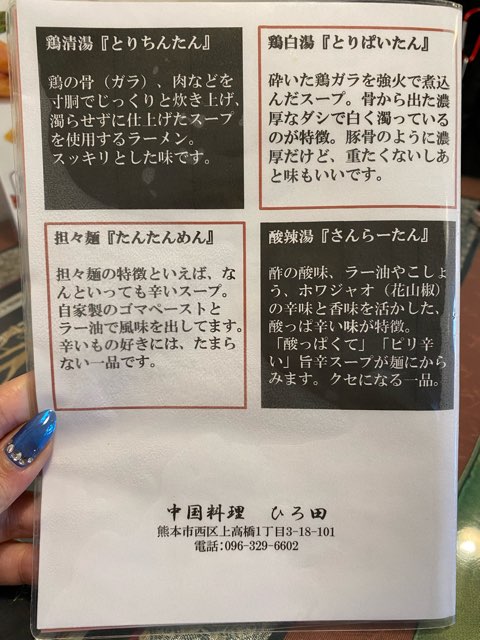 鶏清湯『とりちんたん』
鶏の骨（ガラ）、肉などを
寸胴でじっくりと炊き上げ、
濁らせずに仕上げたスープ
を使用するラーメン。
スッキリとした味です。
鶏白湯『とりぱいたん』
砕いた鶏ガラを強火で煮込
んだスープ。骨から出た濃
厚なダシで白く濁っている
のが特徴。豚骨のように濃
厚だけど、重たくないしあ
と味もいいです。
担々麺『たんたんめん』
担々麺の特徴といえば、な
んといっても辛いスープ。
自家製のゴマペーストと
ラー油で風味を出してます。
辛いもの好きには、たまら
ない一品です。
酸辣湯『さんらーたん』
酢の酸味、ラー油やこしょ
う、ホワジャオ（花山椒）
の辛味と香味を活かした、
酸っぱ辛い味が特徴。
「酸っぱくて」「ピリ辛
い」旨辛スープが麺にから
みます。クセになる一品。
中国料理　ひろ田
熊本市西区上高橋1丁目3-18-101
電話：096-329-6602